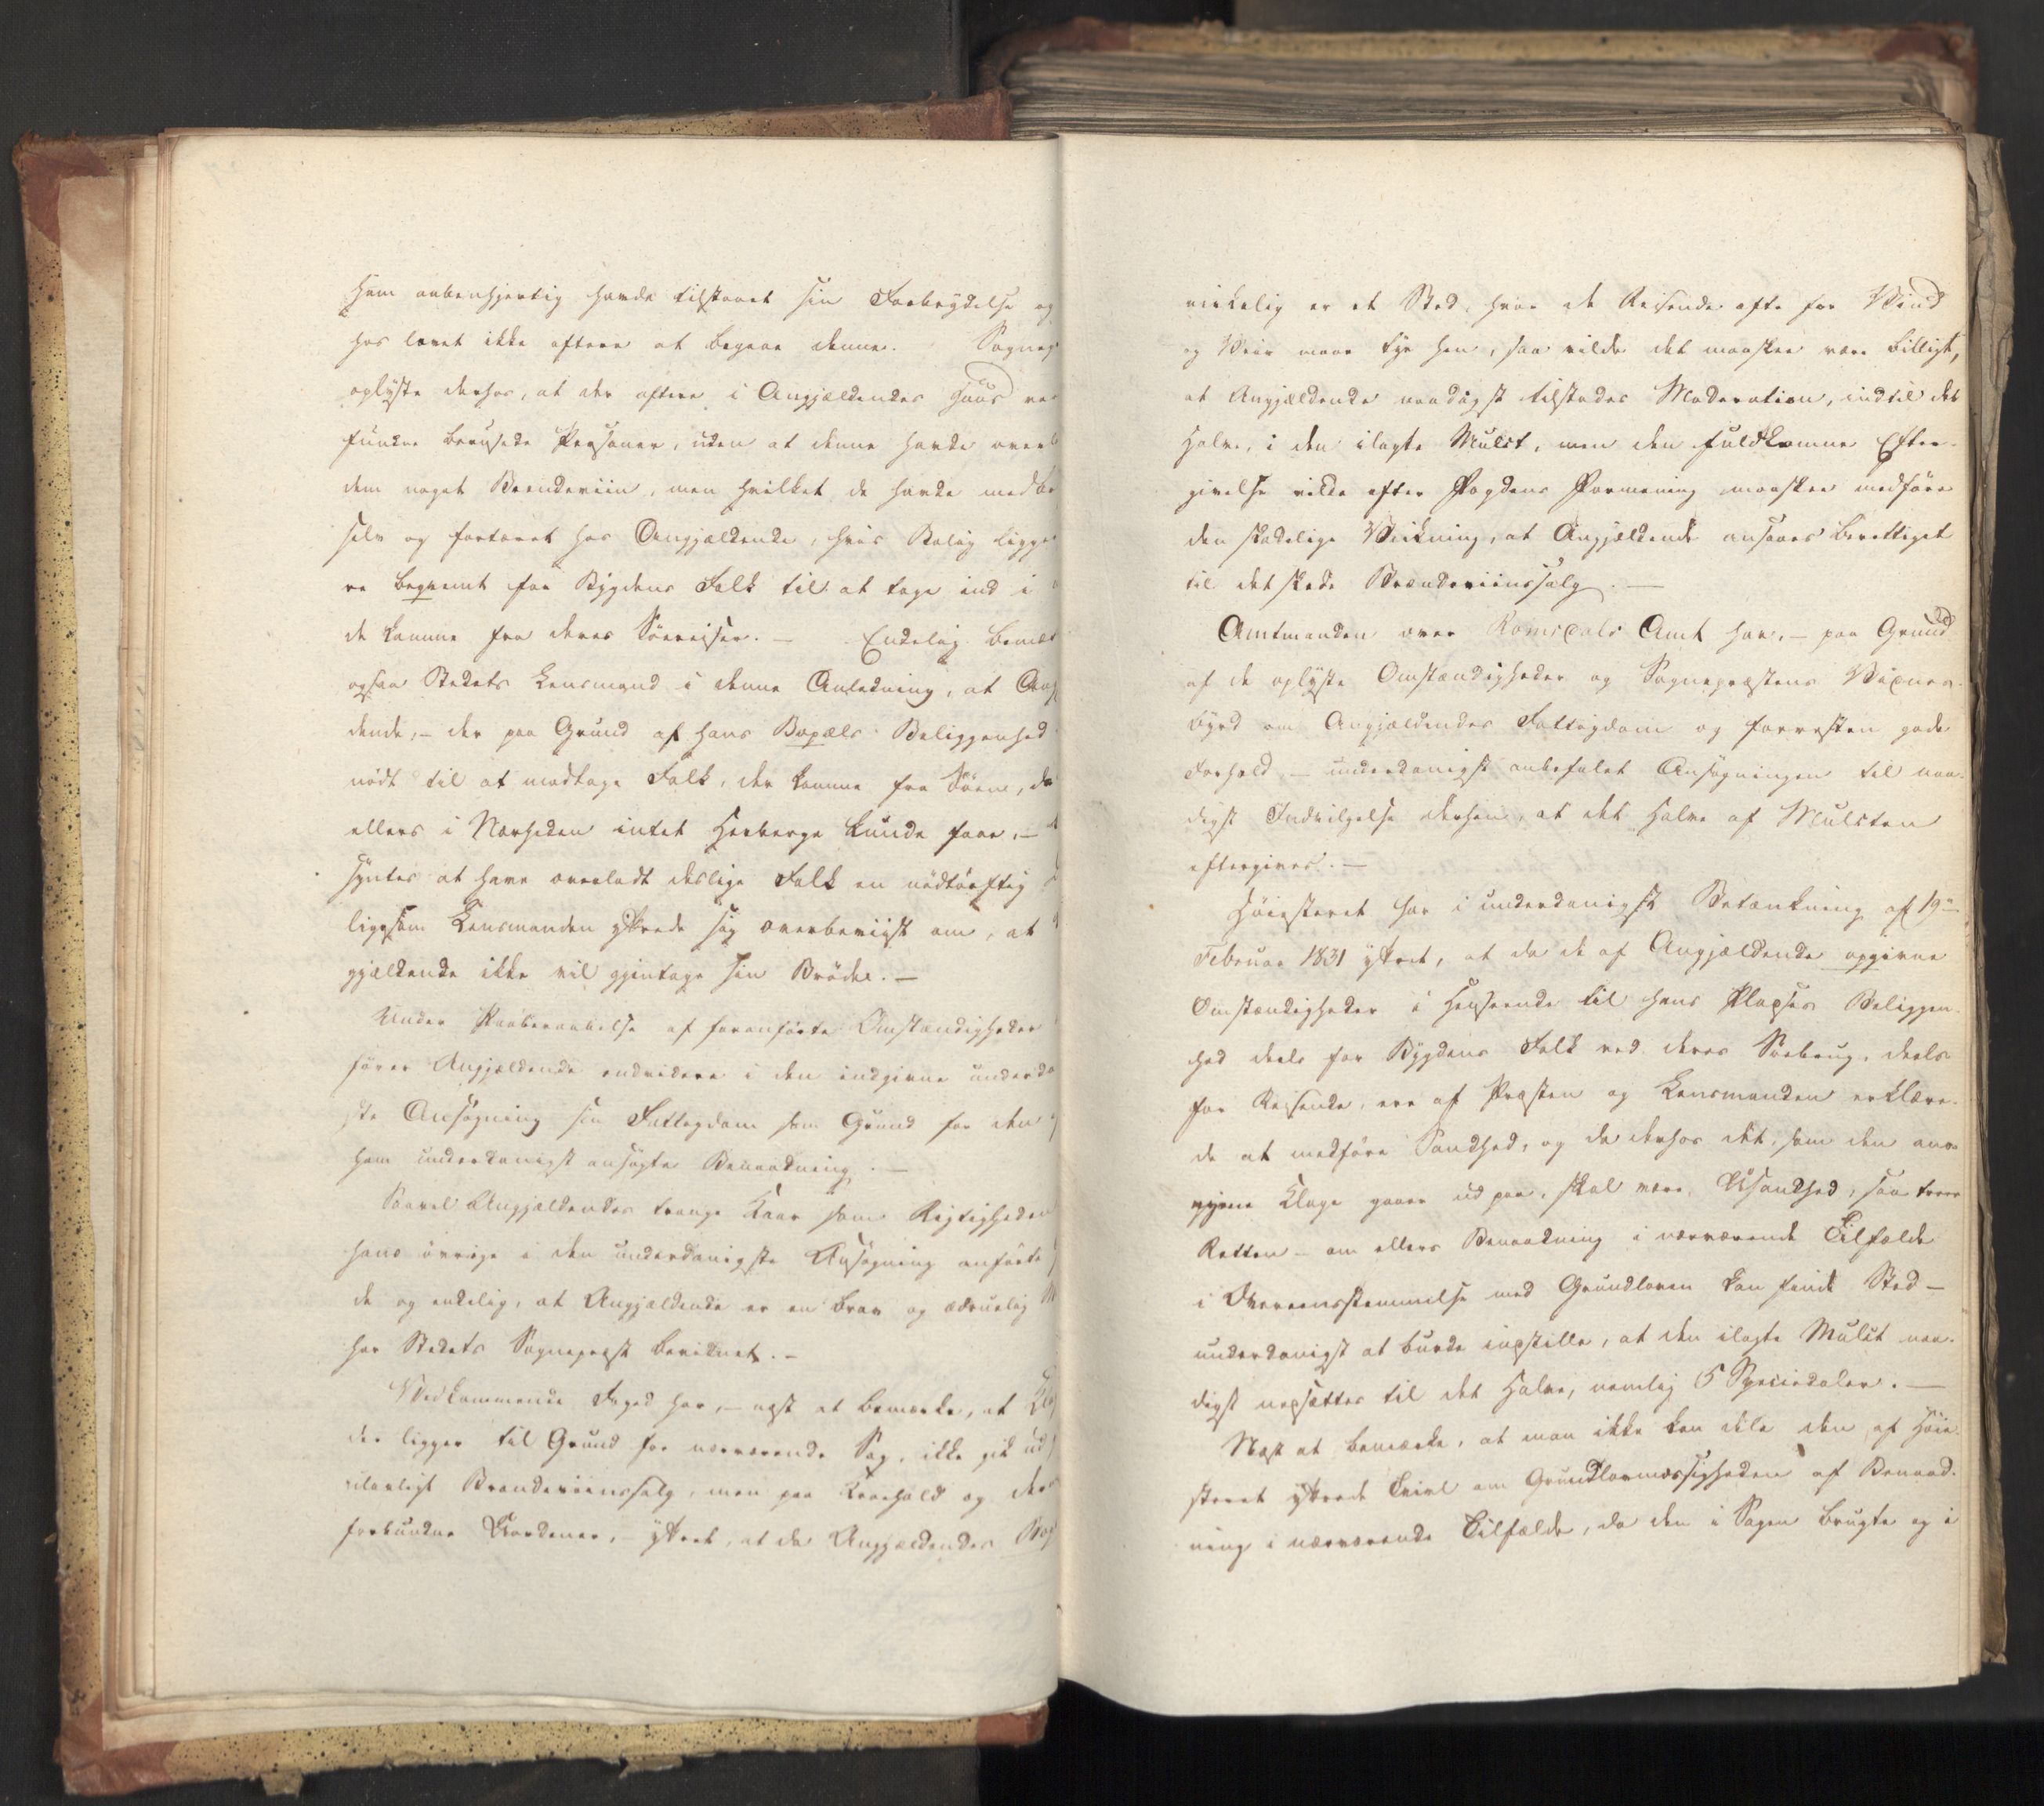 ham aabenhjertig havde tilstaaet sin Forbrydelse og
har lovet ikke oftere at begaae denne. Sognep
oplyste derhos, at der oftere i Angjældendes Huus va
fundne berusede Personer, uden at denne havde overl
dem noget Brændeviin, men hvilket de havde medbr
selv og fortæret hos Angjældende, hvis Bolig ligge
re beqvemt for Bygdens Folk til at tage ind i
de komme fra deres Söereiser. — Endelig bemær
ogsaa Stedets Lensmand i denne Anledning, at Ang
dende, – der paa Grund af hans Bopæls Beliggenhed
nödt til at modtage Folk, der komme fra Söen, da
ellers i Nærheden intet Herberge kunde faae, –
syntes at have overladt deslige Folk en nödtörftig
ligesom Lensmanden yttrede sig overbeviist om, at
gjældende ikke vil gjentage sin Bröde. —
Under Paaberaabelse af foranförte Omstændigheder
förer Angjældende endvidere i den indgivne underda
ste Ansögning sin Fattigdom som Grund for den
ham underdanigst ansögte Benaadning. —
Saavel Angjældendes trange Kaar som Rigtigheden
hans övrige i den underdanigste Ansögning anförte
de og endelig, at Angjældende er en brav og ædruelig M
har Stedets Sognepræst bevidnet. –
Vedkommende Foged har, – næst at bemærke, at Kla
der ligger til Grund for nærværende Sag, ikke gik ud
ulovligt Brændeviinssalg, men paa Kroehold og der
forbundne Uordener, – yttret, at da Angjældendes Bop
virkelig er et Sted, hvor de Reisende ofte for Vind
og Veir maae tye hen, saa vilde det maaskee være billigt,
at Angjældende naadigst tilstodes Moderation, indtil det
Halve, i den ilagte Mulct, men den fuldkomne Efter-
givelse vilde efter Fogdens Formening maaskee medföre
den skadelige Virkning, at Angjældende ansaaes berettiget
til det skede Brændeviinssalg. —
Amtmanden over Romsdals Amt har, – paa Grund
af de oplyste Omstændigheder og Sognepræstens Vidnes-
byrd om Angjældendes Fattigdom og forresten gode
Forhold, – underdanigst anbefalet Ansögningen til naa-
digst Indvilgelse derhen, at det Halve af Mulcten
eftergives. —
Höiesteret har i underdanigst Betænkning af 19de
Februar 1831 yttret, at da de af Angjældende opgivne
Omstændigheder i Henseende til hans Pladses Beliggen-
hed deels for Bygdens Folk ved deres Söebrug, deels
for Reisende, ere af Præsten og Lensmanden erklære-
de at medföre Sandhed, og da derhos det, som den an-
givne Klage gaaer ud paa, skal være Usandhed, saa troer
Retten – om ellers Benaadning i nærværende Tilfælde
i Overeensstemmelse med Grundloven kan finde Sted –
underdanigst at burde indstille, at den ilagte Mulct naa-
digst nedsættes til det Halve, nemlig 5 Speciedaler. —
Næst at bemærke, at man ikke kan dele den af Höie-
steret yttrede Tvivl om Grundlovmæssigheden af Benaad-
ning i nærværende Tilfælde, da den i Sagen brugte og i